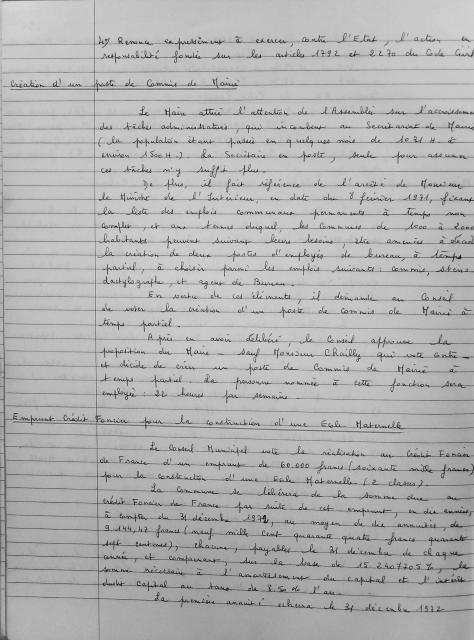 4°) Renonce expressément à exercer, contre l'Etat, l'action en
responsabilité fondée sur les articles 1792 et 2270 du Code Civil
Création d'un poste de Commis de Mairie
Le Maire attire l'attention de l'Assemblée sur l'accroissement
des tâches administratives, qui incombent au Secrétariat de Mairie
(la population étant passée en quelques mois de 1031 H. à
environ 1500 H.). La Secrétaire en poste, seule pour assumer
ces tâches n'y suffit plus.
De plus, il fait référence de l'arrêté de Monsieur
le Ministre de l'Intérieur, en date du 8 février 1971, fixant
la liste des emplois communaux permanents à temps non
complet, et aux termes duquel, les Communes de 1000 à 2000
habitants peuvent suivant leurs besoins, être amenées à décider
la création de deux postes d'employés de bureau, à temps
partiel, à choisir parmi les emplois suivants : commis, sténo-
dactylographe, et agent de Bureau.
En vertu de ces éléments, il demande au Conseil
de voter la création d'un poste de commis de Mairie à
temps partiel.
Après en avoir délibéré, le Conseil approuve la
proposition du Maire - sauf Monsieur Chailly qui vote contre -
et décide de créer un poste de Commis de Mairie à
temps partiel. La personne nommée à cette fonction sera
employée : 22 heures par semaine.
Emprunt Crédit Foncier pour la construction d'une Ecole Maternelle
Le Conseil Municipal vote la réalisation au Crédit Foncier
de France d'un emprunt de 60.000 francs (soixante mille francs)
pour la construction d'une Ecole Maternelle (2 classes).
La Commune se libérera de la somme due au
crédit Foncier de France par suite de cet emprunt, en dix années,
à compter du 31 décembre 1971, au moyen de dix annuités, de
9.144,47 francs (neuf mille cent quarante quatre francs quarante
sept centimes), chacune, payables le 31 décembre de chaque
année, et comprenant, sur la base de 15.2407705 %, la
somme nécessaire à l'amortissement du capital et l'intérêt
dudit capital au taux de 8.50 % l'an.
La première annuité échera le 31 décembre 1972